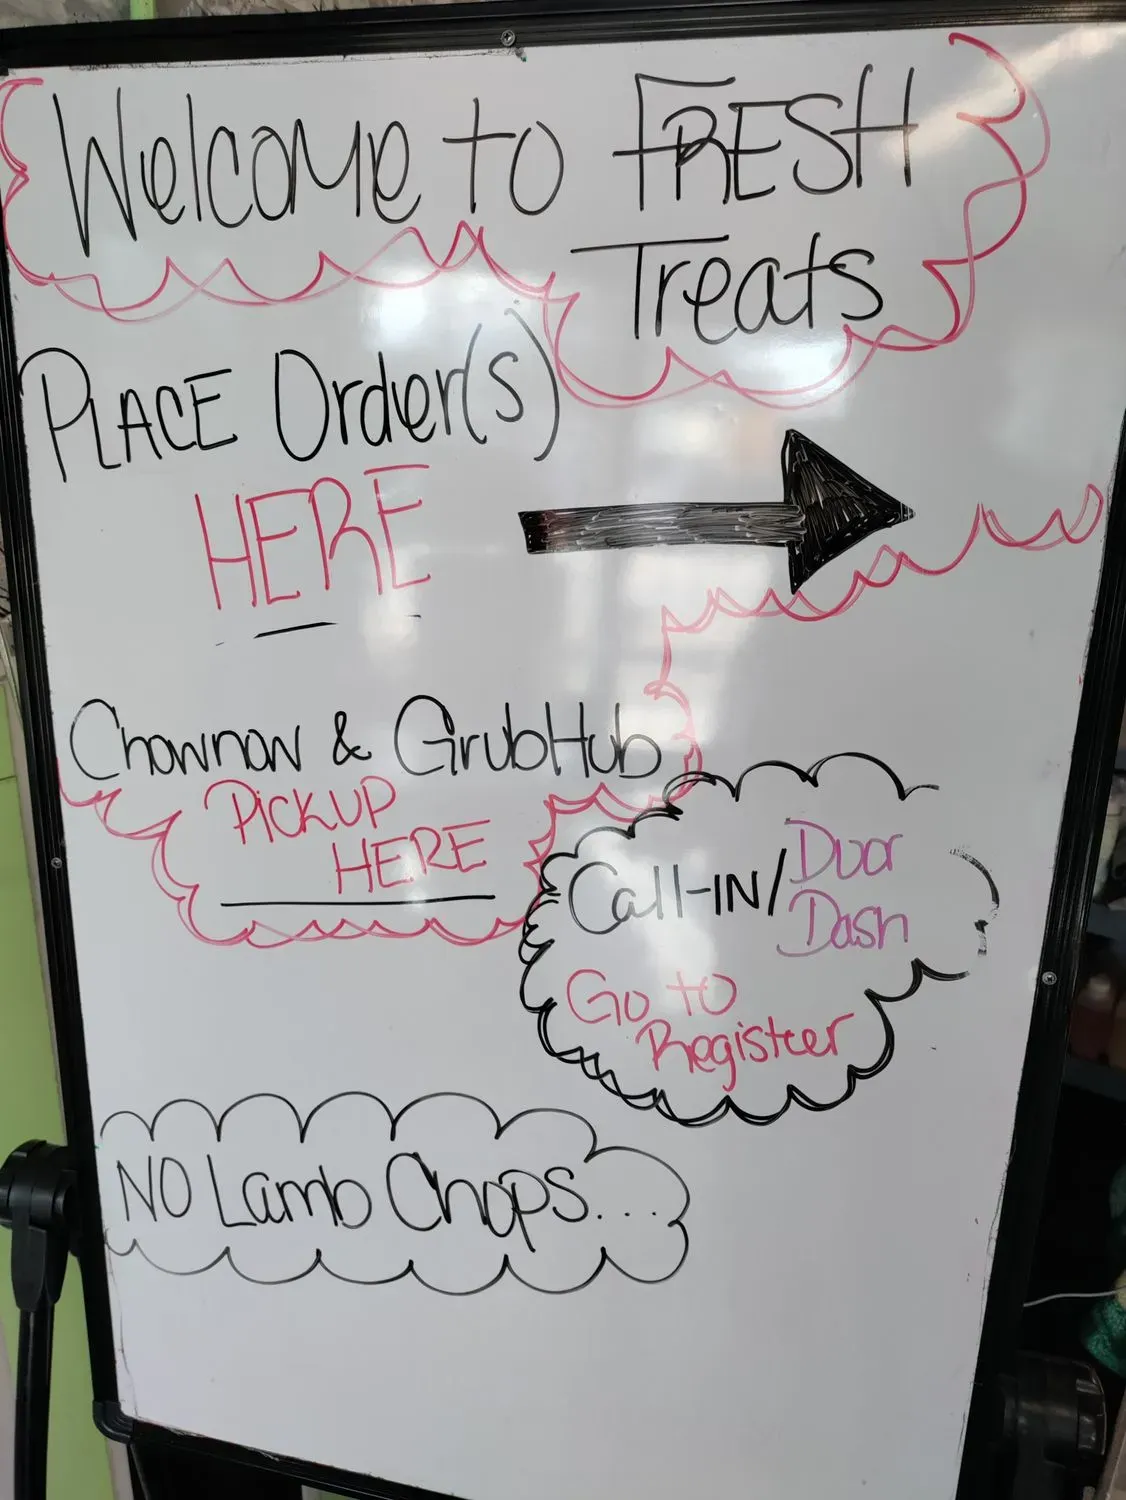 Welcome to FRESH
Treats
PLACE Order(s)
HERE
Chownow & GrubHub
PickUP
HERE
Call-IN/Door
Dash
Go to
Register
NO Lamb Chops...